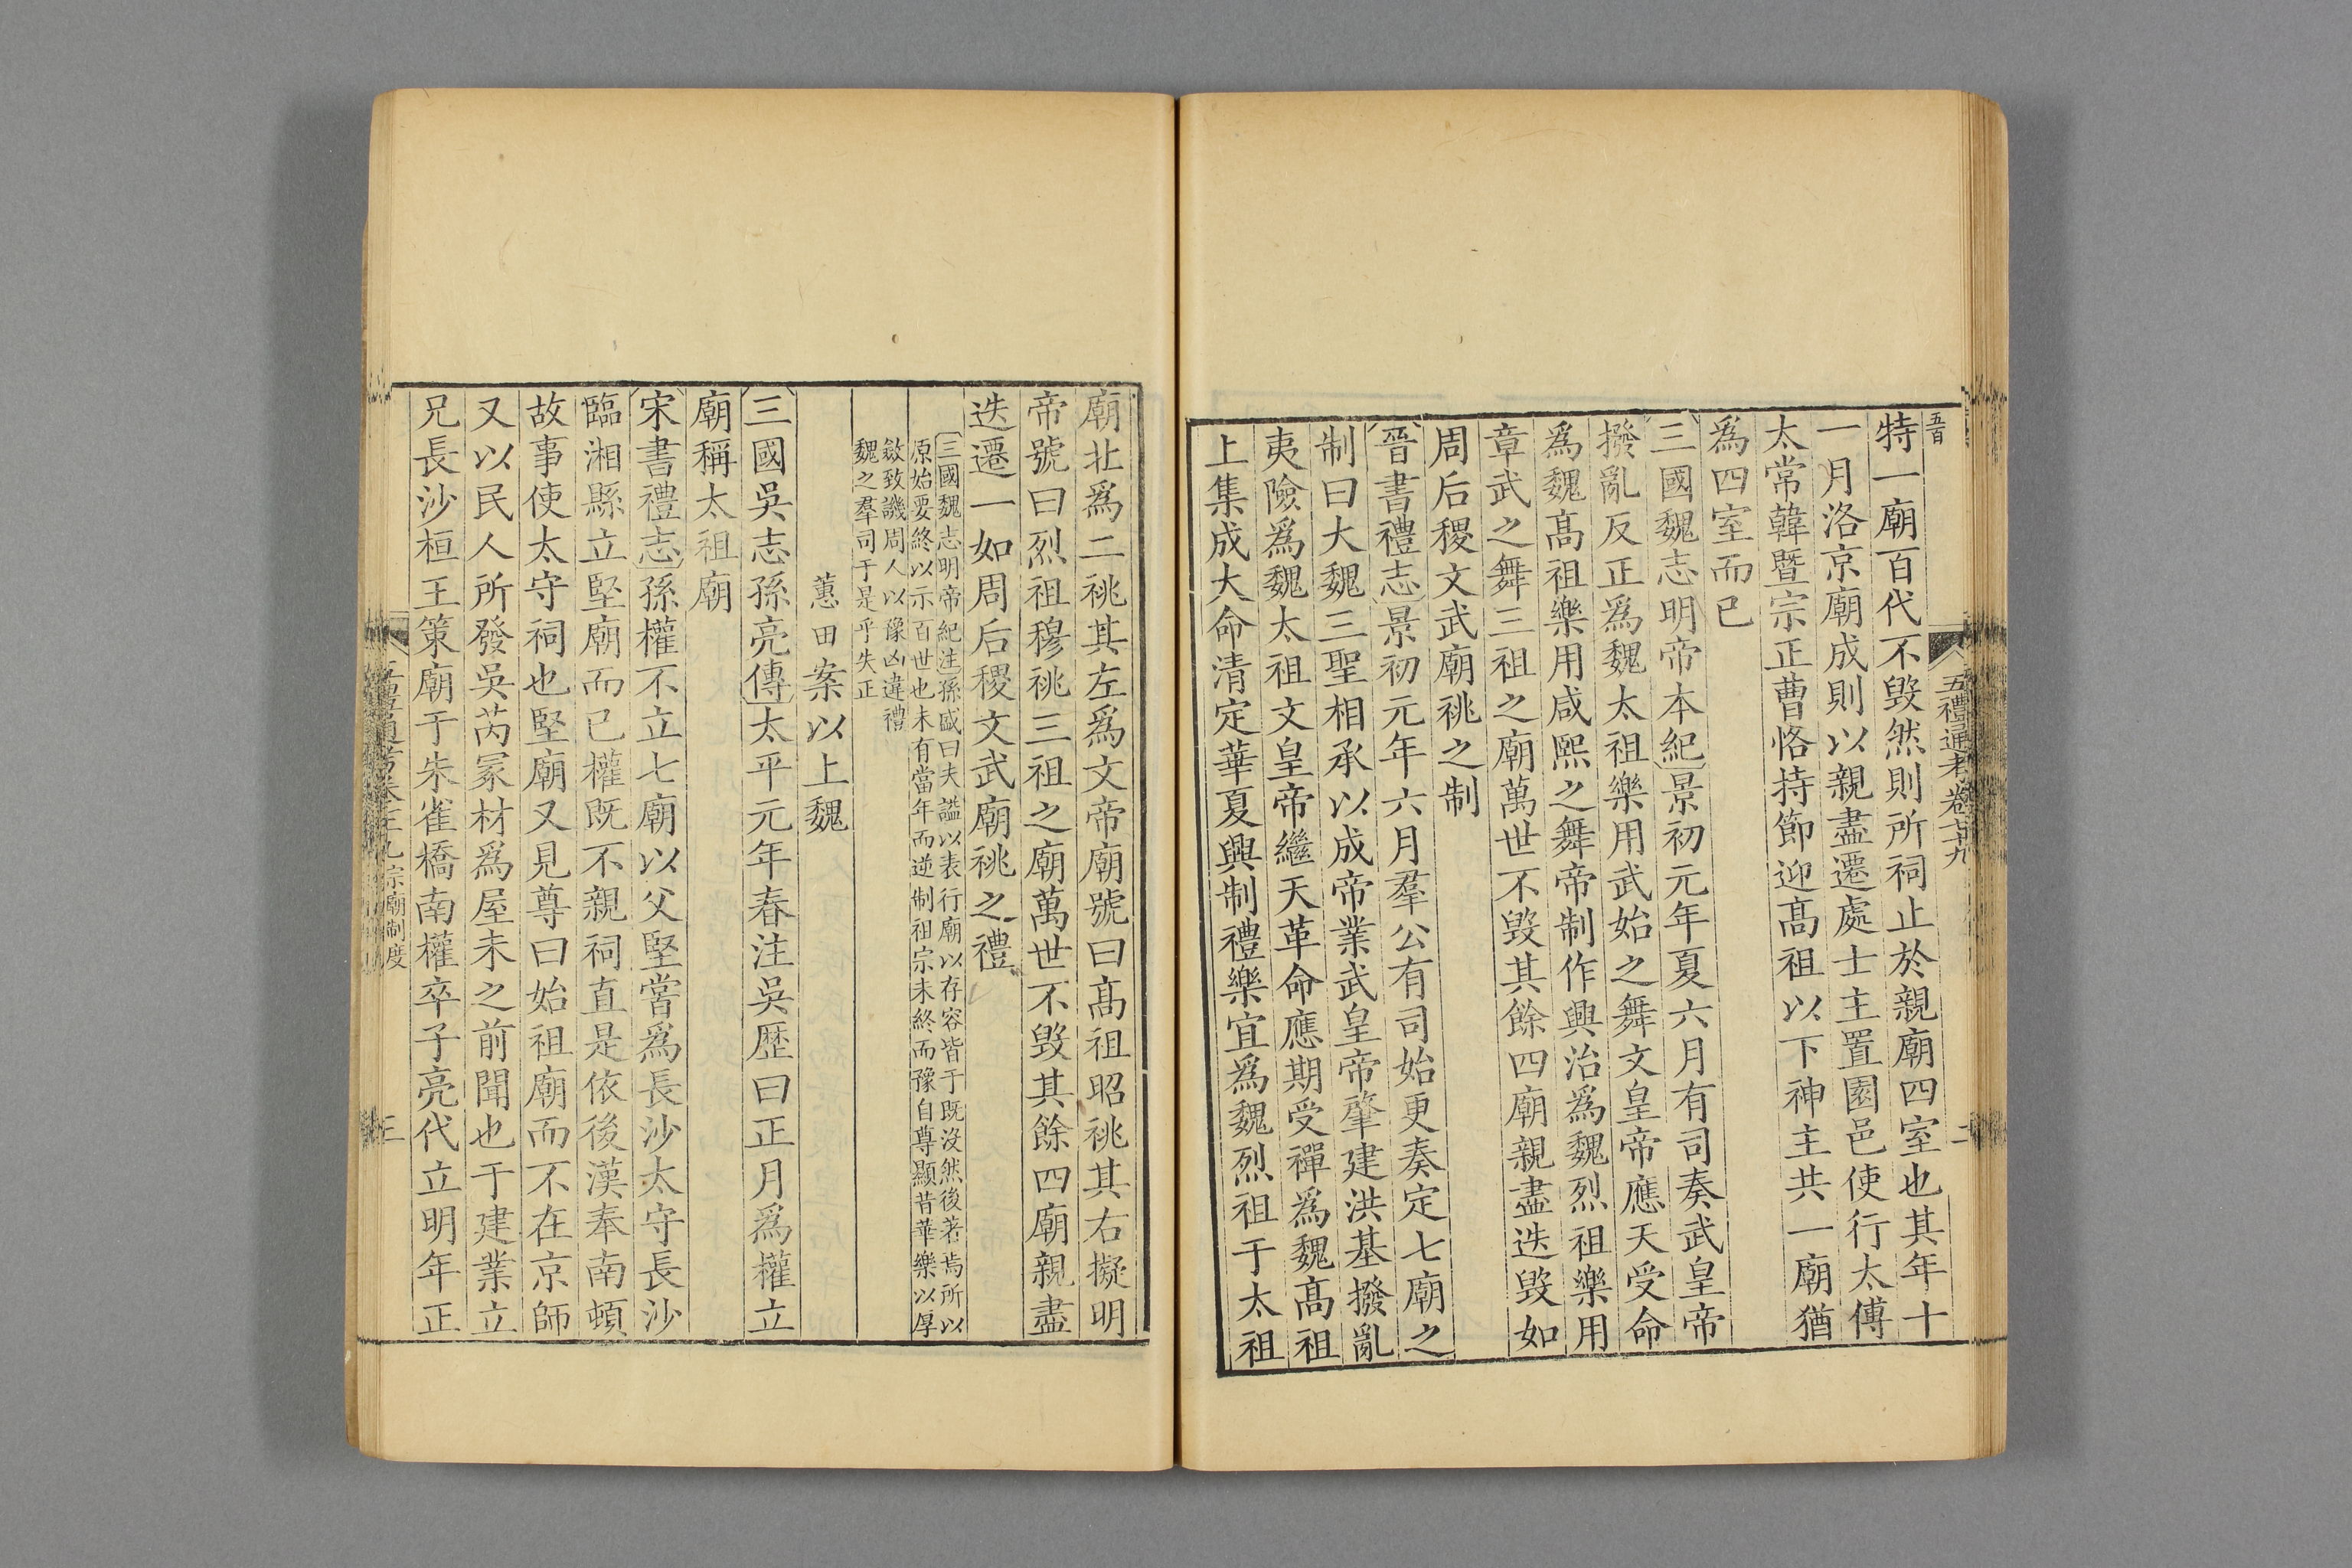 五百
五禮通考卷七十九
二
特一廟百代不毀然則所祠止於親廟四室也其年十
一月洛京廟成則以親盡遷處士主置園邑使行太傅
太常韓暨宗正曹恪持節迎髙祖以下神主共一廟猶
爲四室而已
三國魏志明帝本紀景初元年夏六月有司奏武皇帝
撥亂反正爲魏太祖樂用武始之舞文皇帝應天受命
爲魏髙祖樂用咸熙之舞帝制作興治爲魏烈祖樂用
章武之舞三祖之廟萬世不毀其餘四廟親盡迭毀如
周后稷文武廟祧之制
晉書禮志景初元年六月羣公有司始更奏定七廟之
制曰大魏三聖相承以成帝業武皇帝肇建洪基撥亂
夷險爲魏太祖文皇帝繼天革命應期受禪爲魏髙祖
上集成大命清定華夏興制禮樂宜爲魏烈祖于太祖
廟北爲二祧其左爲文帝廟號曰髙祖昭祧其右擬明
帝號曰烈祖穆祧三祖之廟萬世不毀其餘四廟親盡
迭遷一如周后稷文武廟祧之禮
三國魏志明帝紀注孫盛曰夫謚以表行廟以存容皆于既沒然後著焉所以
原始要終以示百世也未有當年而逆制祖宗未終而豫自尊顯昔華樂以厚
斂致譏周人以豫凶違禮
魏之羣司于是乎失正
蕙田案以上魏
三國吳志孫亮傳太平元年春注吳歷曰正月爲權立
廟稱太祖廟
宋書禮志孫權不立七廟以父堅嘗爲長沙太守長沙
臨湘縣立堅廟而已權既不親祠直是依後漢奉南頓
故事使太守祠也堅廟又見尊曰始祖廟而不在京師
又以民人所發吳芮冢材爲屋未之前聞也于建業立
兄長沙桓王策廟于朱雀橋南權卒子亮代立明年正
宗廟制度
三